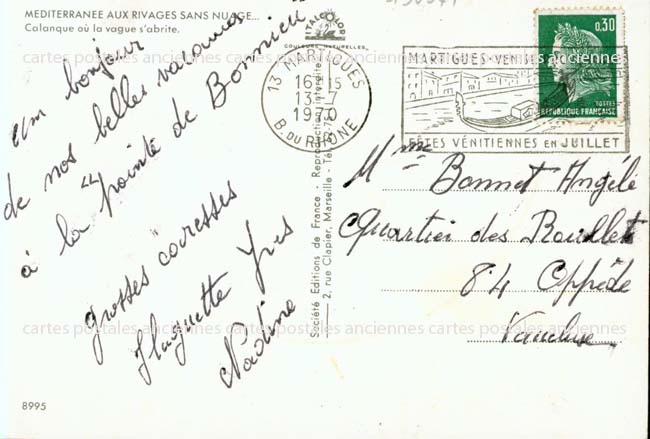 MEDITERRANEE AUX RIVAGES SANS NUAGE...
Calanque où la vague s'abrite.
un bonjour
de nos belles vacances
à la "pointe de Bonnieu"
grosses caresses
Huguette Yves
Nadine
8995
COULEURS NATURELLES
Société Editions de France - Reproduction interdite
2, rue Clapier, Marseille - Tél.
13 MARTIGUES
16H15
13-7
1970
B. DU RHONE
MARTIGUES-VENISE
FÊTES VÉNITIENNES EN JUILLET
0,30
POSTES
REPUBLIQUE FRANÇAISE
Mme Bonnet Angèle
Quartier des
84 Oppède
Vaucluse
cartes postales anciennes cartes postales anciennes cartes postales anciennes
cartes postales anciennes cartes postales anciennes cartes postales anciennes